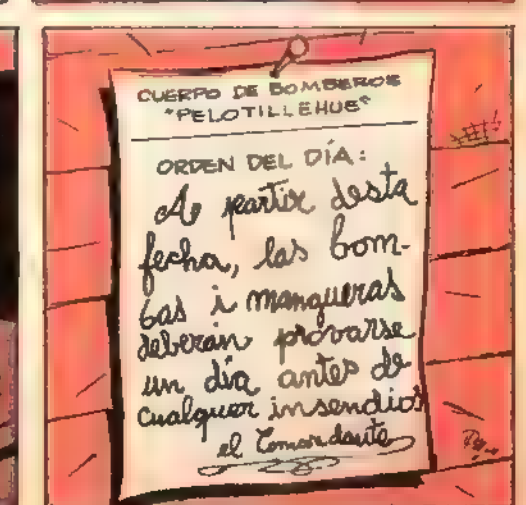 CUERPO DE BOMBEROS
"PELOTILLEHUE"
ORDEN DEL DÍA:
A partir desta
fecha, las bom-
bas i mangueras
deberán provarse
un día antes de
cualquer insendio!
el Comandante